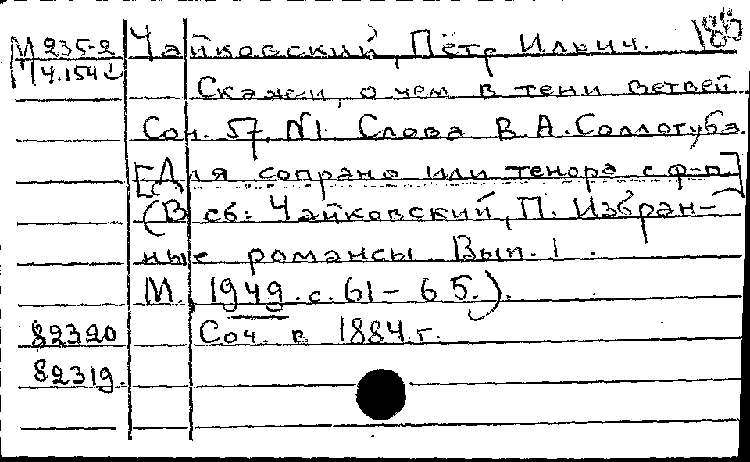 М 235-2 Чайковский, Пётр Ильич. 188
Ч.154
Скажи, о чем в тени ветвей
Соч. 57, №1. Слова В.А. Соллогуба.
[Для сопрано или тенора с ф-п]
(В сб: Чайковский, П. Избран-
ные романсы Вып. 1.
М., 1949. с. 61-65.).
82320 Соч. в 1884 г.
82319.